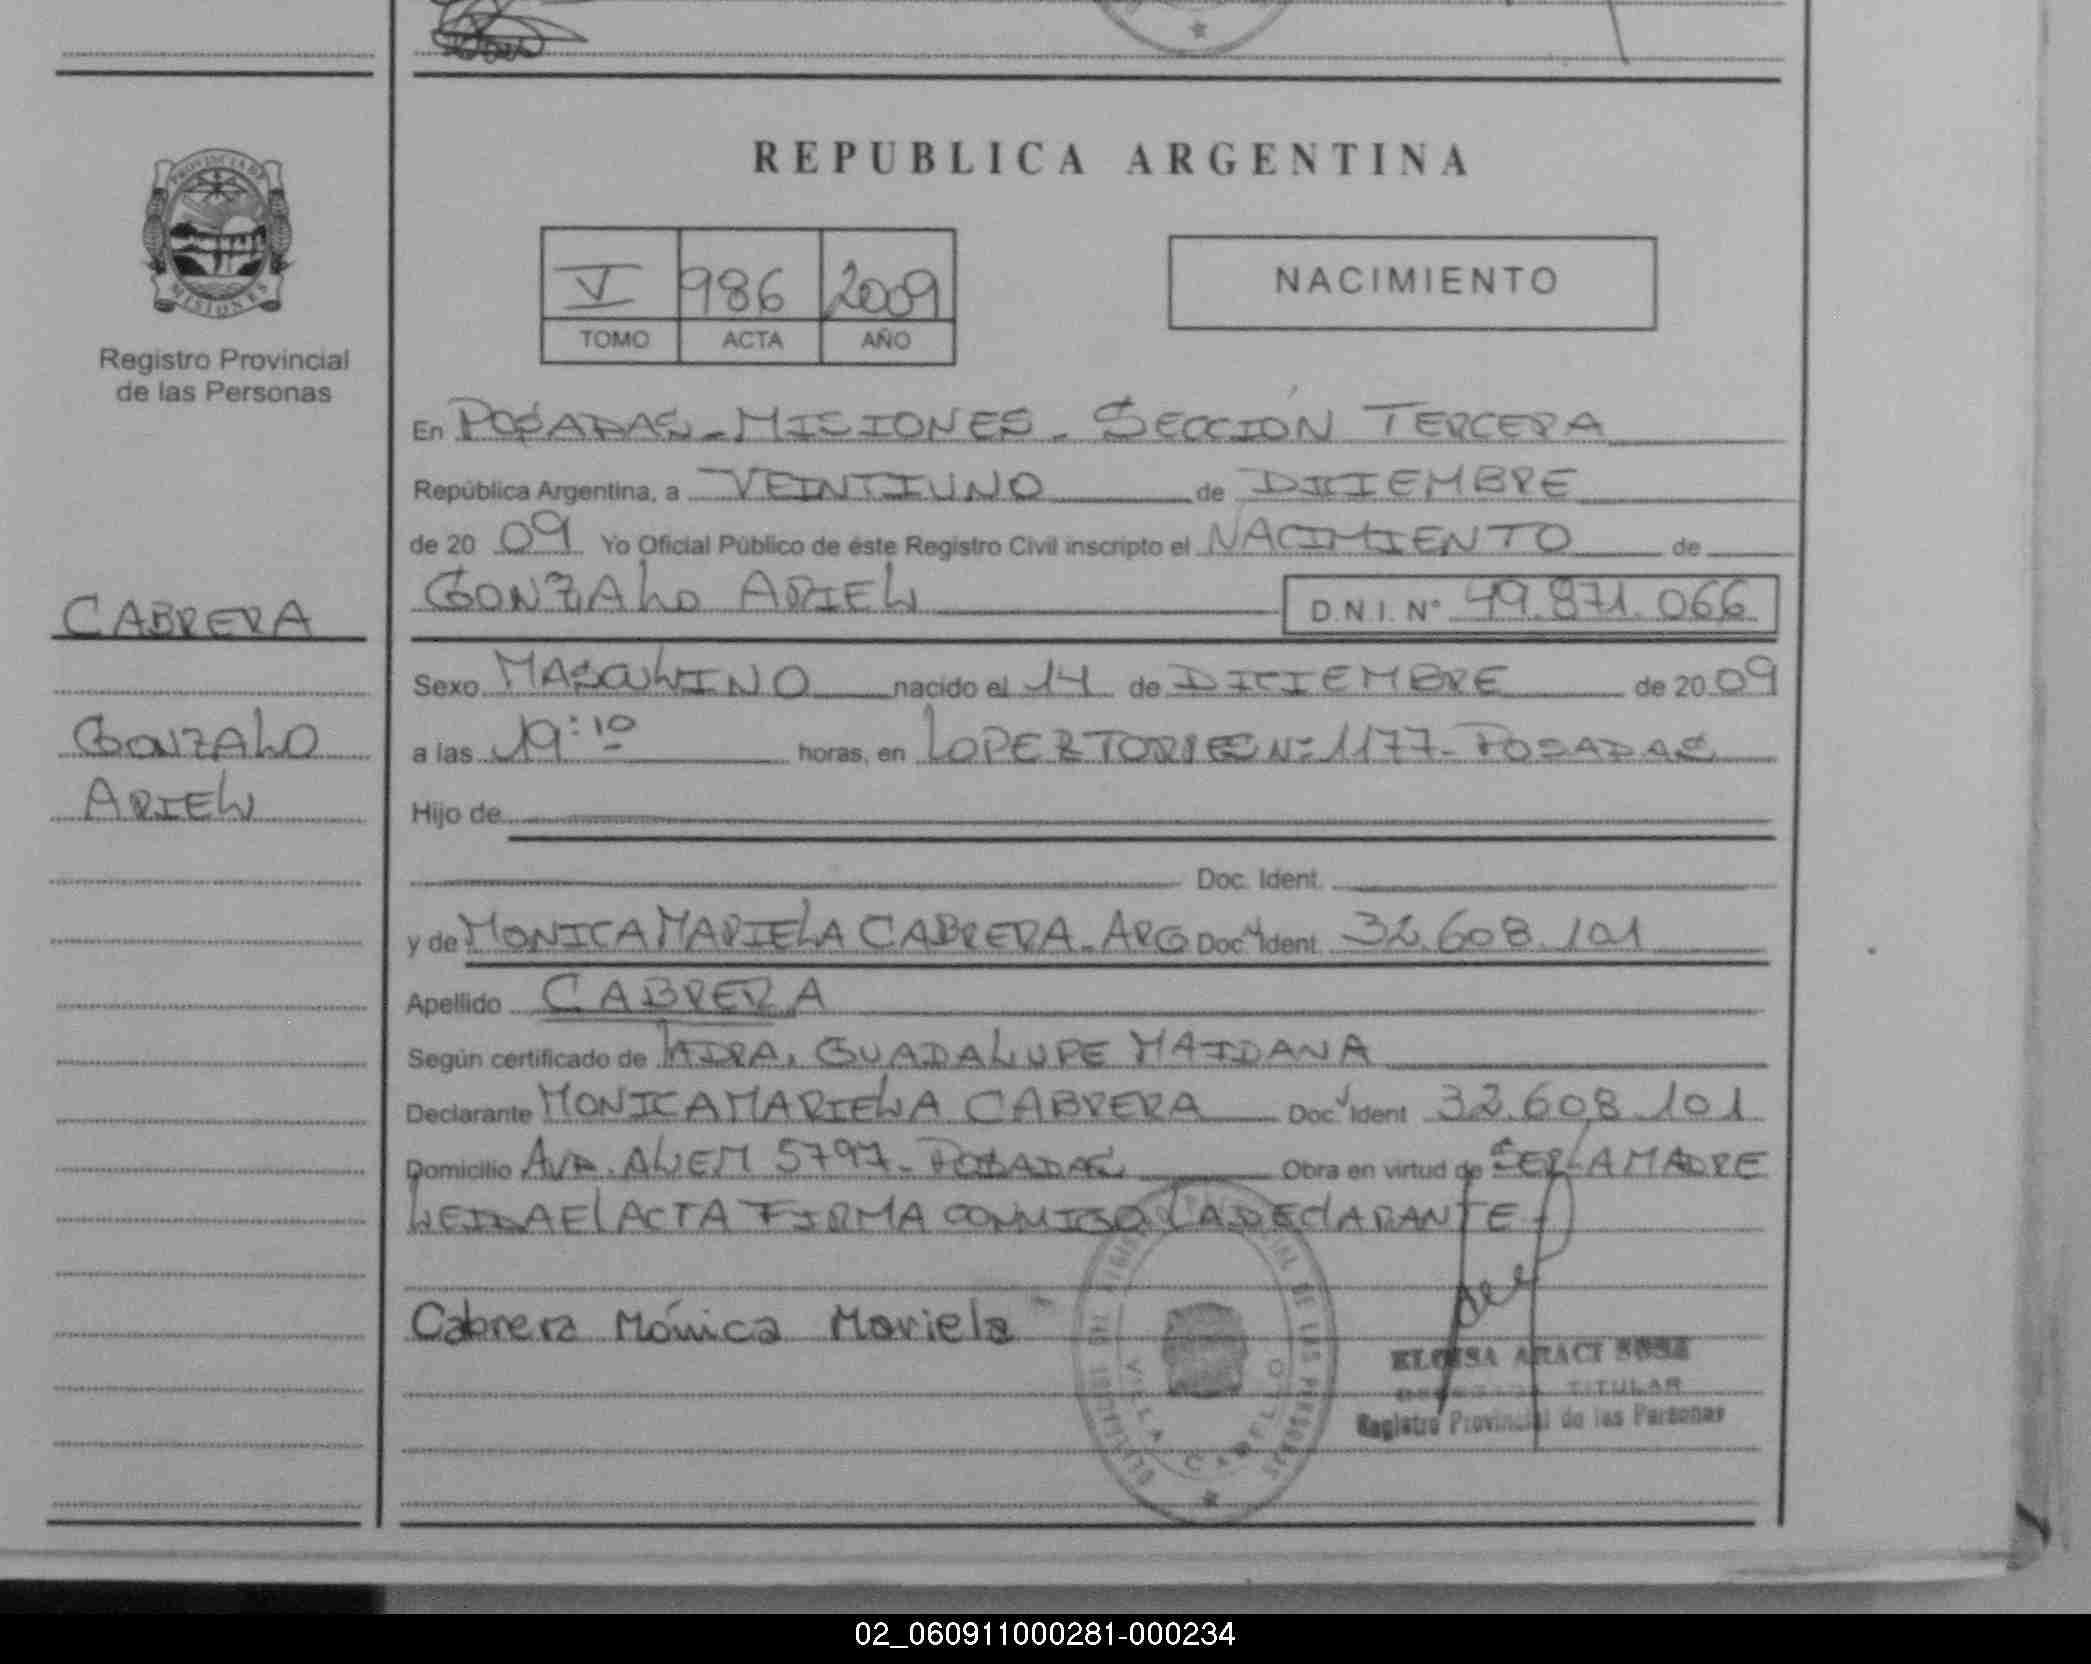 PROVINCIA DE
MISIONES
Registro Provincial
de las Personas
CABRERA
GONZALO
ARIEL
REPUBLICA ARGENTINA
V 986 2009
TOMO ACTA AÑO
NACIMIENTO
En POSADAS - MISIONES - SECCIÓN TERCERA
República Argentina, a VEINTIUNO de DICIEMBRE
de 20 09 Yo Oficial Público de éste Registro Civil inscripto el NACIMIENTO de
GONZALO ARIEL D.N.I. Nº 49.871.066
Sexo MASCULINO nacido el 14 de DICIEMBRE de 20 09
a las 19:10 horas, en LOPEZ TORRES Nº 1177 - POSADAS
Hijo de
Doc. Ident.
y de MONICA MARIELA CABRERA - ARG Doc. Ident. 32.608.101
Apellido CABRERA
Según certificado de GUADALUPE MAIDANA
Declarante MONICA MARIELA CABRERA Doc. Ident 32.608.101
Domicilio AVDA. ALEM 5797 - POSADAS Obra en virtud de SER LA MADRE
LEIDA EL ACTA FIRMA CONMIGO LA DECLARANTE
Cabrera Mónica Mariela
REGISTRO PROVINCIAL DE LAS PERSONAS
VILLA CABELLO
ELOISA ARACI SOSA
TITULAR
Registro Provincial de las Personas
02_060911000281-000234